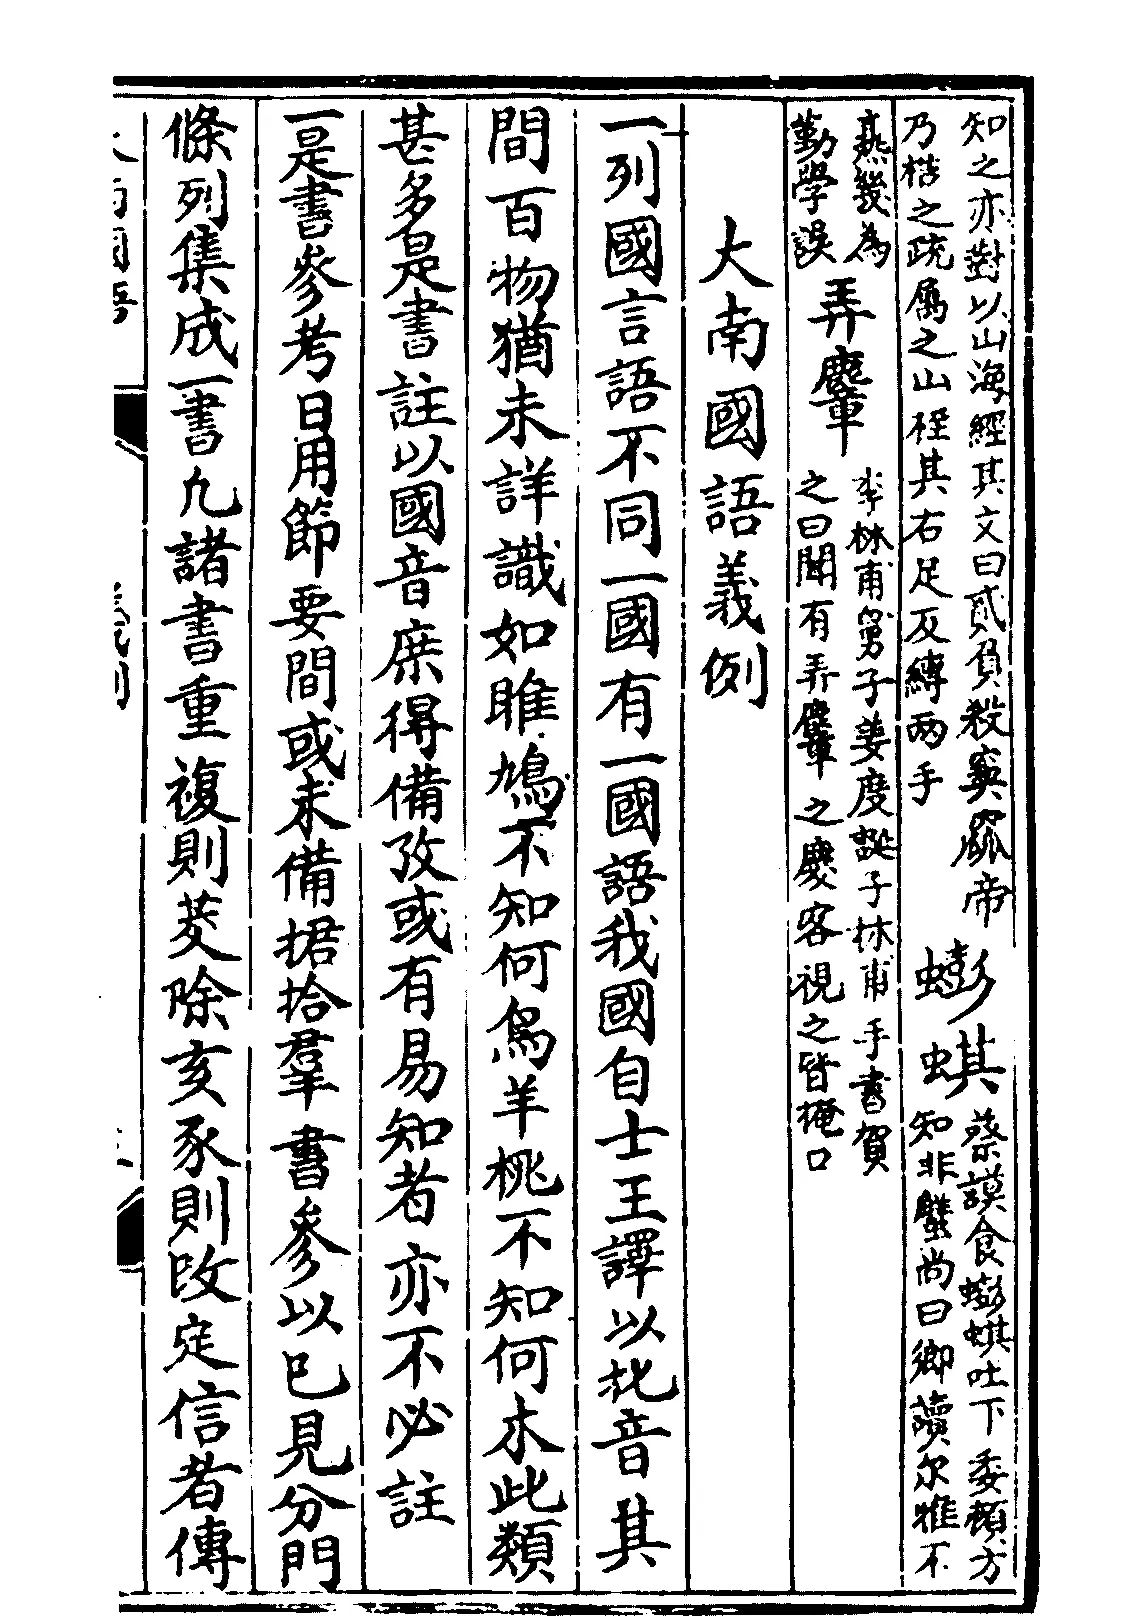 知之亦對以山海經其文曰貳負殺窫窳帝
乃梏之疏属之山桎其右足反縛两手
蟛蜞
蔡謨食蟛蜞吐下委頓方
知非蟹尚曰卿讀尔雅不
燕幾為
勤學誤
弄麞
李林甫舅子姜度誕子林甫手書賀
之曰聞有弄麞之慶客視之皆掩口
大南國語義例
一列國言語不同一國有一國語我國自士王譯以北音其
間百物猶未詳識如睢鳩不知何鳥羊桃不知何木此類
甚多是書註以國音庶得備攷或有易知者亦不必註
一是書參考日用節要間或未備捃拾羣書參以已見分門
條列集成一書凡諸書重複則芟除亥豕則改定信者傳